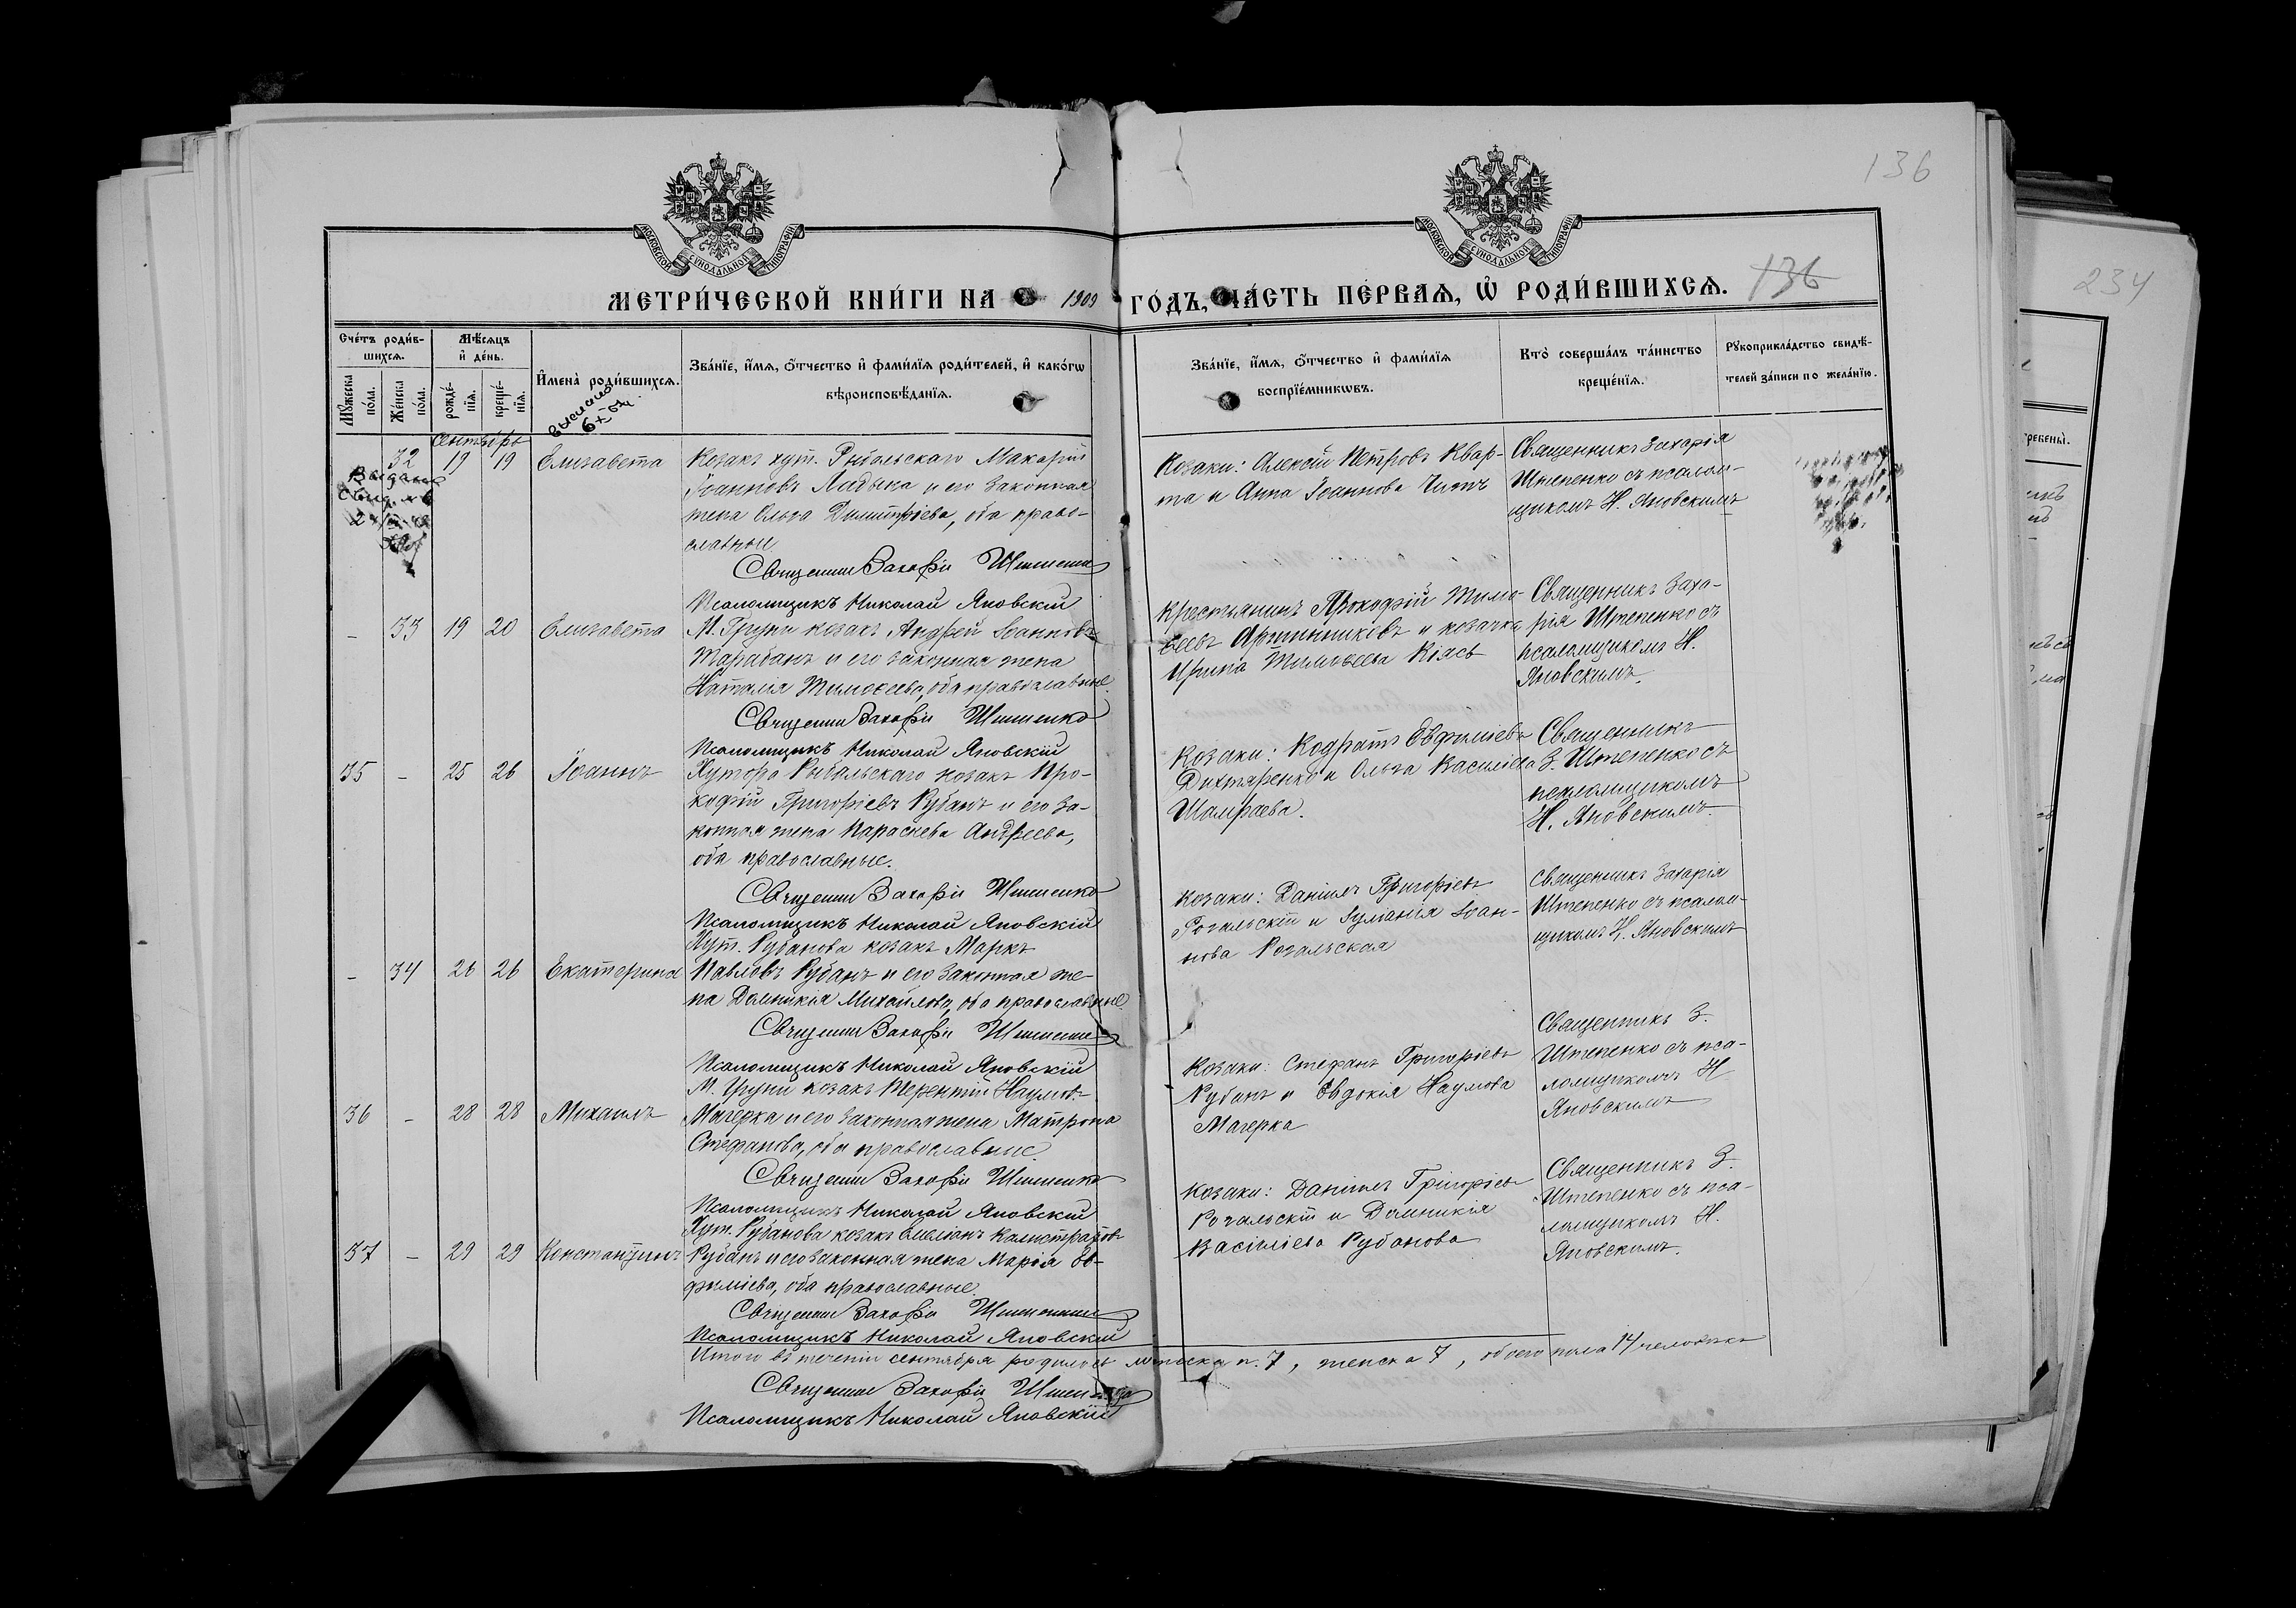 136
МОСКОВСКОЙ СѴНОДАЛЬНОЙ ТИПОГРАФІИ
МОСКОВСКОЙ СѴНОДАЛЬНОЙ ТИПОГРАФІИ
МЕТРИ́ЧЕСКОЙ КНИ́ГИ НА 1909 ГО́ДЪ, ЧА́СТЬ ПЕ́РВАЯ, Ѡ҆ РОДИ́ВШИХСѦ. 136
234
Сче́тъ роди́в-
шихсѧ.
Мѹ́жеска по́ла.
Же́нска по́ла.
Мѣ́сѧцъ и҆ де́нь.
рожде́-
нїѧ.
креще́-
нїѧ.
И҆мена̀ роди́вшихсѧ.
Зва́нїе, и҆́мѧ, ѻ҆́тчество и҆ фами́лїѧ роди́телей, и҆ како́гѡ
вѣроисповѣ́данїѧ.
Зва́нїе, и҆́мѧ, ѻ҆́тчество и҆ фами́лїѧ
воспрїе́мникѡвъ.
Кто̀ соверша́лъ та́инство
креще́нїѧ.
Рѹкоприкла́дство свидѣ́-
телей за́писи по жела́нїю.
Сентябрь
32 19 19 Елизавета
Выдано
Свид.
Козакъ хут. Рыбальскаго Макарій
Іоанновъ Ладыка и его законная
жена Ольга Димитріева, оба право-
славные
Священник Захарій Штепенко
Псаломщикъ Николай Яновскій
Козаки: Алексій Петровъ Квар-
та и Анна Іоаннова Чижъ
Священникъ Захарія
Штепенко съ псалом-
щикомъ Н. Яновскимъ
- 33 19 20 Елизавета
М. Груни козакъ Андрей Іоанновъ
Тарабанъ и его законная жена
Наталія Тимоѳеева, оба православные.
Священник Захарій Штепенко
Псаломщикъ Николай Яновскій
Крестьянинъ Прокофій Тимо-
ѳеевъ Аршинниковъ и козачка
Ирина Тимоѳеева Кіясь
Священникъ Заха-
рія Штепенко съ
псаломщикомъ Н.
Яновскимъ.
35 - 25 26 Іоаннъ
Хутора Рыбальскаго козакъ Про-
кофій Григоріевъ Рубанъ и его за-
конная жена Параскева Андреева,
оба православные.
Священник Захарій Штепенко
Псаломщикъ Николай Яновскій
Козаки: Кодратъ Евфиміевъ
Дихтяренко и Ольга Василіева
Шамраева.
Священникъ
З. Штепенко съ
псаломщикомъ
Н. Яновскимъ.
- 34 26 26 Екатерина
Хут. Рубанова козакъ Маркъ
Павловъ Рубанъ и его законная же-
на Домникія Михайлова, оба православные.
Священник Захарій Штепенко
Псаломщикъ Николай Яновскій
Козаки: Даніилъ Григоріевъ
Рогальскій и Іуліанія Іоан-
нова Рогальская
Священникъ Захарія
Штепенко съ псалом-
щикомъ Н. Яновскимъ
36 - 28 28 Михаилъ
М. Груни козакъ Терентій Наумовъ
Магерка и его законная жена Матрона
Стефанова, оба православные.
Священник Захарій Штепенко
Псаломщикъ Николай Яновскій
Козаки: Стефанъ Григоріевъ
Рубанъ и Евдокія Наумова
Магерка
Священникъ З.
Штепенко съ пса-
ломщикомъ Н
Яновскимъ
37 - 29 29 Константинъ
Хут. Рубанова козакъ Емеліанъ Калистратовъ
Рубанъ и его законная жена Марія Ев-
фиміева, оба православные.
Священник Захарій Штепенко
Псаломщикъ Николай Яновскій
Козаки: Даніилъ Григоріевъ
Рогальскій и Домникія
Василіева Рубанова
Священникъ З.
Штепенко съ пса-
ломщикомъ Н.
Яновскимъ.
Итого въ теченіи сентября родилось мужеска п. 7, женска 7, обоего пола 14 человѣкъ
Священник Захарій Штепенко
Псаломщикъ Николай Яновскій